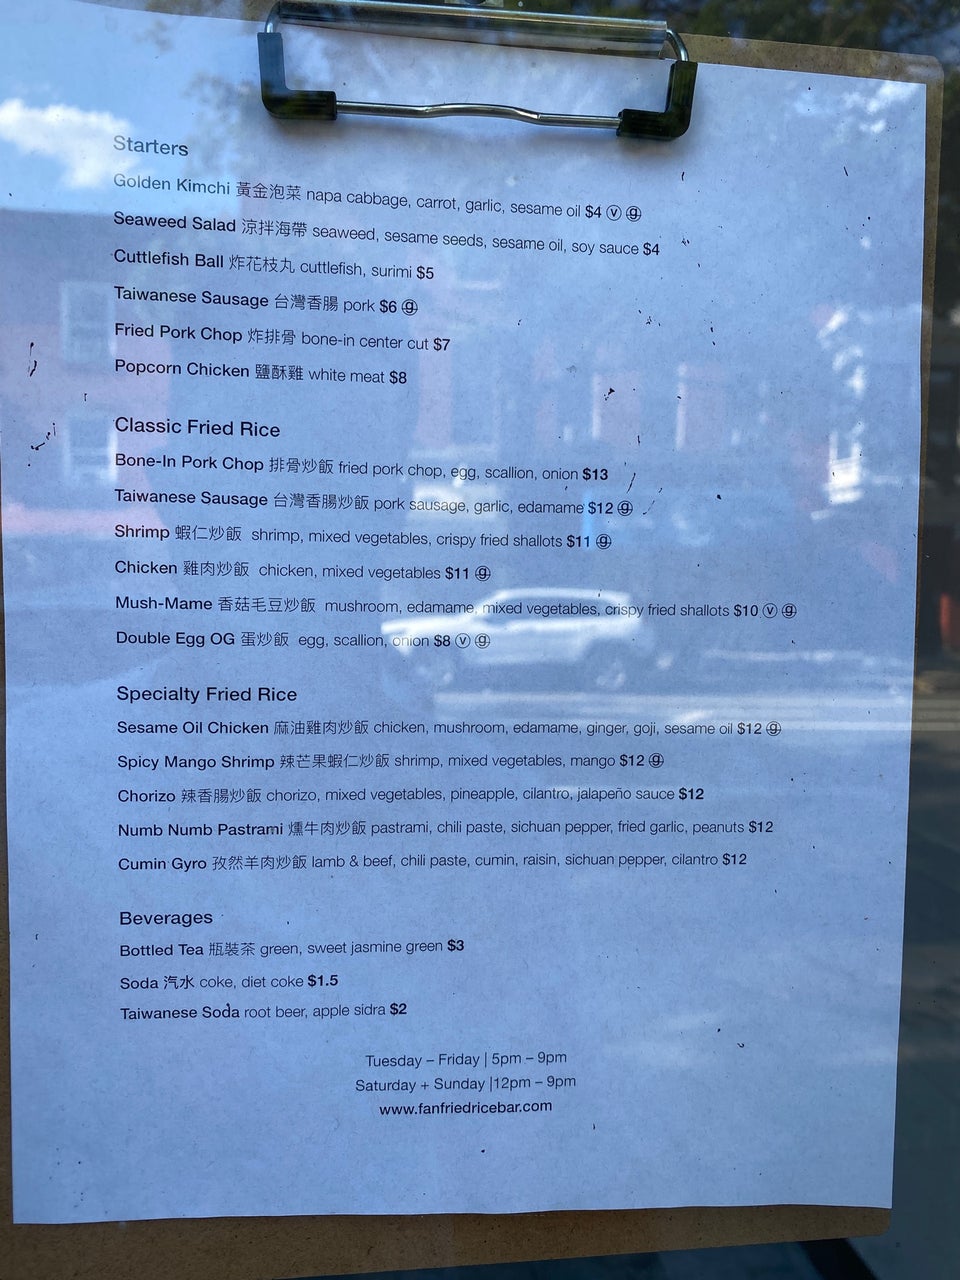 Starters
Golden Kimchi 黃金泡菜 napa cabbage, carrot, garlic, sesame oil $4 ⓥ ⓖ
Seaweed Salad 涼拌海帶 seaweed, sesame seeds, sesame oil, soy sauce $4
Cuttlefish Ball 炸花枝丸 cuttlefish, surimi $5
Taiwanese Sausage 台灣香腸 pork $6 ⓖ
Fried Pork Chop 炸排骨 bone-in center cut $7
Popcorn Chicken 鹽酥雞 white meat $8
Classic Fried Rice
Bone-In Pork Chop 排骨炒飯 fried pork chop, egg, scallion, onion $13
Taiwanese Sausage 台灣香腸炒飯 pork sausage, garlic, edamame $12 ⓖ
Shrimp 蝦仁炒飯 shrimp, mixed vegetables, crispy fried shallots $11 ⓖ
Chicken 雞肉炒飯 chicken, mixed vegetables $11 ⓖ
Mush-Mame 香菇毛豆炒飯 mushroom, edamame, mixed vegetables, crispy fried shallots $10 ⓥ ⓖ
Double Egg OG 蛋炒飯 egg, scallion, onion $8 ⓥ ⓖ
Specialty Fried Rice
Sesame Oil Chicken 麻油雞肉炒飯 chicken, mushroom, edamame, ginger, goji, sesame oil $12 ⓖ
Spicy Mango Shrimp 辣芒果蝦仁炒飯 shrimp, mixed vegetables, mango $12 ⓖ
Chorizo 辣香腸炒飯 chorizo, mixed vegetables, pineapple, cilantro, jalapeño sauce $12
Numb Numb Pastrami 燻牛肉炒飯 pastrami, chili paste, sichuan pepper, fried garlic, peanuts $12
Cumin Gyro 孜然羊肉炒飯 lamb & beef, chili paste, cumin, raisin, sichuan pepper, cilantro $12
Beverages
Bottled Tea 瓶裝茶 green, sweet jasmine green $3
Soda 汽水 coke, diet coke $1.5
Taiwanese Soda root beer, apple sidra $2
Tuesday – Friday | 5pm – 9pm
Saturday + Sunday |12pm – 9pm
www.fanfriedricebar.com